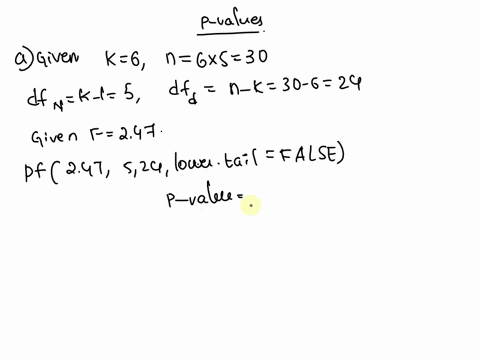 p-values
a) Given k=6, n=6x5=30
df_N=k-1=5, df_d = n-k=30-6=24
Given F=2.47.
pf(2.47, 5,24, lower.tail=FALSE)
p-value=